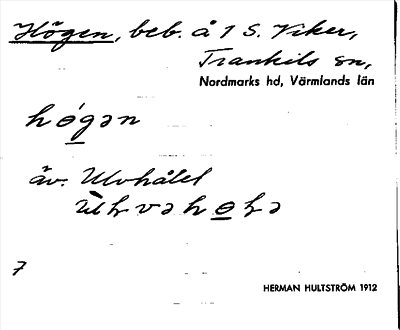 Högen, beb. å 1 S. Viker,
Trankils sn,
Nordmarks hd, Värmlands län
hógən
äv. Ulvhålet
7
HERMAN HULTSTRÖM 1912